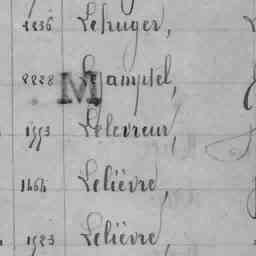 2236 Lehuger,
2228 M Lejamptel,
1373 Lelevreur,
1464 Lelièvre,
1923 Lelièvre,